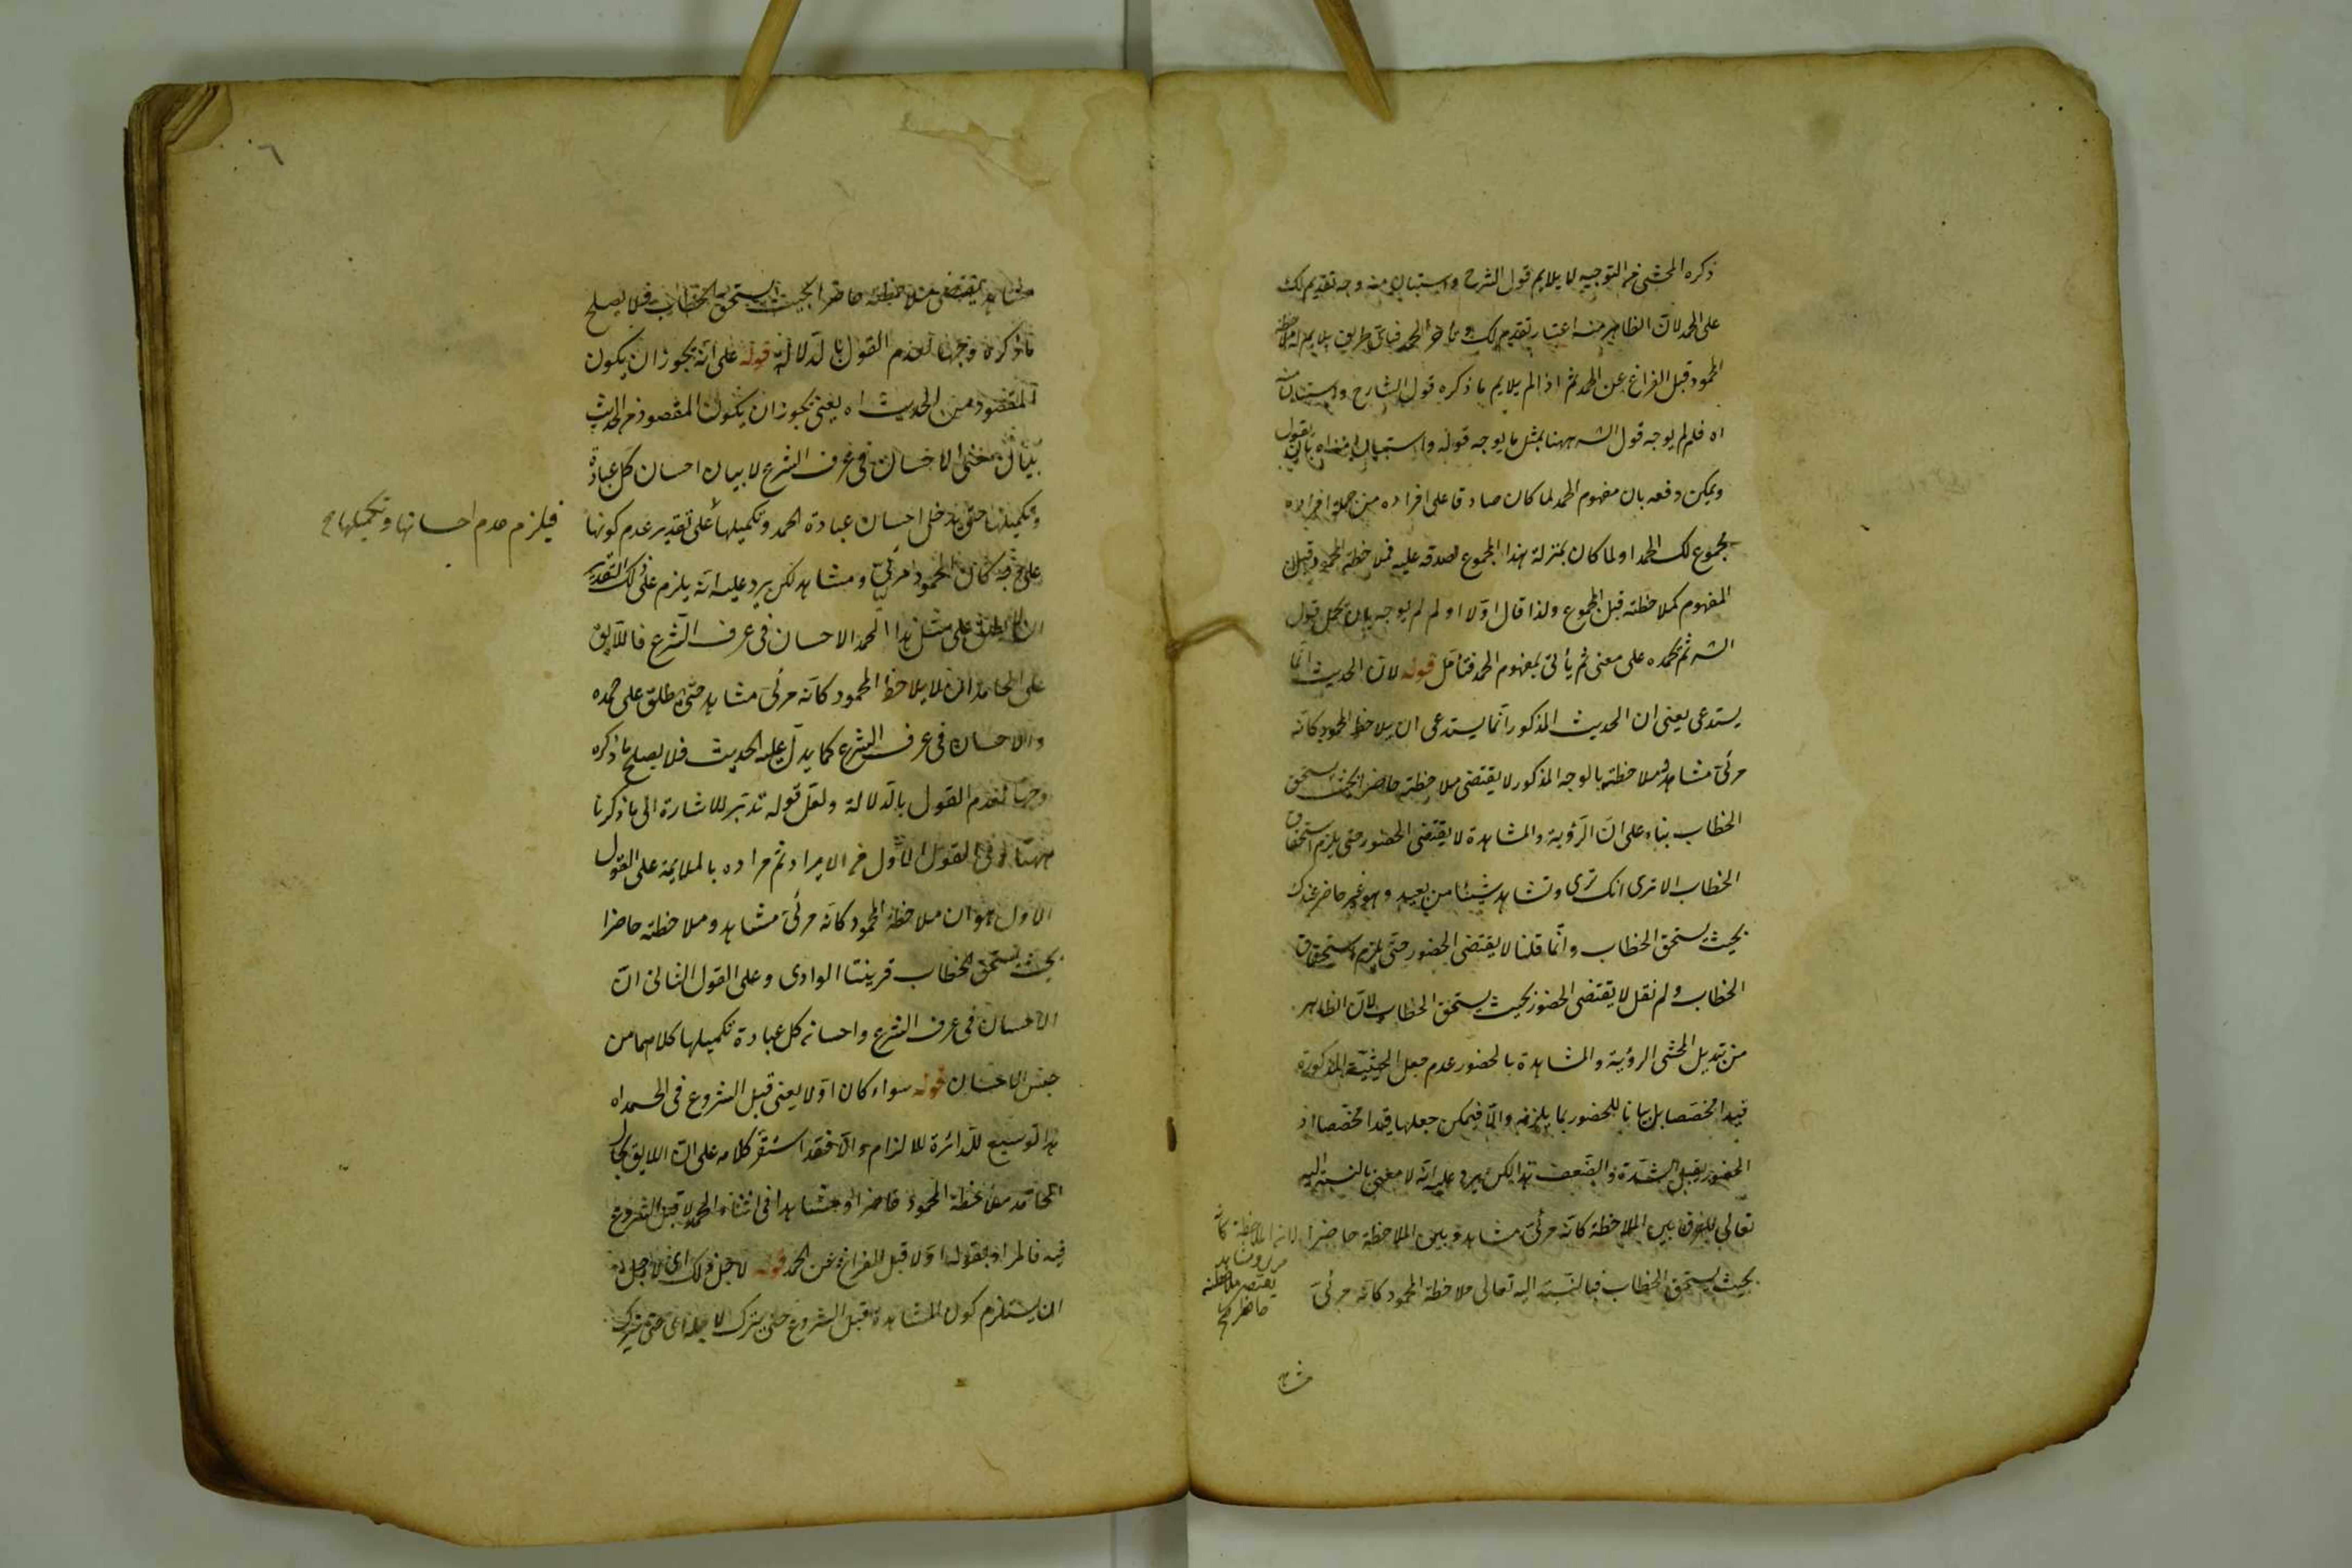 ذكره المحشى من التوجيه لا يلايم قول الشرح واستبان منه وجه تقديم لك
على الحمد لان الظاهر منه اعتبار تقديم لك وتأخر الحمد فباى طريق يلايم له ملاحظة
المحمود قبل الفراغ عن الحمد ثم اذا لم يلايم ما ذكره قول الشارح واستبان منه
اه فلم لم يوجه قول الشه ههنا بمثل ما يوجه قوله واستبان منه اه بان يقول
ويمكن دفعه بان مفهوم الحمد لما كان صادقا على افراده من جملة افراده
مجموع لك الحمد او لما كان بمنزلة هذا المجموع لصدقه عليه فملاحظة المحمود قبل
المفهوم كملاحظته قبل المجموع ولذا قال اولا او لم لم يوجه بان يحمل قول
الشه ثم يحمده على معنى ثم يأتى بمفهوم الحمد فتأمل قوله لان الحديث انما
يستدعى يعنى ان الحديث المذكور انما يستدعى ان يلاحظ المحمود كانه
مرئى مشاهد وملاحظته بالوجه المذكور لا يقتضى ملاحظته حاضرا بحيث يستحق
الخطاب بناء على ان الرؤية والمشاهدة لا يقتضى الحضور حتى يلزم استحقاق
الخطاب الا ترى انك ترى وتشاهد شيئا من بعيد وهو غير حاضر عندك
بحيث يستحق الخطاب وانما قلنا لا يقتضى الحضور حتى يلزم استحقاق
الخطاب ولم نقل لا يقتضى الحضور بحيث يستحق الخطاب لان الظاهر
من تبديل المحشى الرؤية والمشاهدة بالحضور عدم جعل الحيثية المذكورة
قيدا مخصصا بل بيانا للحضور بما يلزمه والا فيمكن جعلها قيدا مخصصا اذ
الحضور يقبل الشدة والضعف هذا لكن يرد عليه انه لا معنى بالنسبة اليه
تعالى للفرق بين الملاحظة كانه مرئى مشاهد وبين الملاحظة حاضرا
بحيث يستحق الخطاب فبالنسبة اليه تعالى ملاحظة المحمود كانه مرئى
مشاهد
مشاهد يقتضى ملاحظته حاضرا بحيث يستحق الخطاب فلا يصلح
ما ذكره وجها لعدم القول بالدلالة قوله على انه يجوز ان يكون
المقصود من الحديث اه يعنى يجوز ان يكون المقصود من الحديث
بيان معنى الاحسان فى عرف الشرع لا بيان احسان كل عبادة
وتكميلها حتى يدخل احسان عبادة الحمد وتكميلها على تقدير عدم كونها
فيلزم عدم احسانها وتكميلها
على وجه كان المحمود مرئى ومشاهد لكن يرد عليه انه يلزم على ذلك التقدير
ان لا يطلق على مثل هذا الحمد الاحسان فى عرف الشرع فاللايق
على الحامد ان يلاحظ المحمود كانه مرئى مشاهد حتى يطلق على حمده
والاحسان فى عرف الشرع كما يدل عليه الحديث فلا يصلح ما ذكره
وجها لعدم القول بالدلالة ولعل قوله تدبر للاشارة الى ما ذكرنا
ههنا وفى القول الاول من الايراد ثم مراده بالملايمة على القول
الاول هو ان ملاحظة المحمود كانه مرئى مشاهد وملاحظته حاضرا
بحيث يستحق الخطاب قريبتا الوادى وعلى القول الثانى ان
الاحسان فى عرف الشرع واحسان كل عبادة تكميلها كلاهما من
جنس الاحسان قوله سواء كان اولا يعنى قبل الشروع فى الحمد اه
هذا توسيع للدائرة للالزام والا فقد استقر كلامه على ان اللايق بحال
الحامد ملاحظة المحمود حاضرا ومشاهدا فى اثناء الحمد لا قبل الشروع
فيه فالمراد بقوله اولا قبل الفراغ عن الحمد قوله لاجل ذلك اى لاجل
ان يستلزم كون المشاهدة قبل الشروع حتى يترك لاجله اى حتى يترك